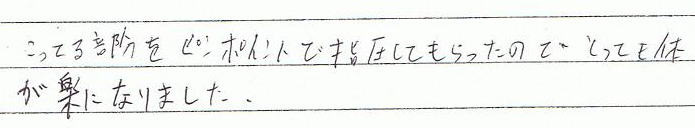 こってる部分をピンポイントで指圧してもらったので とっても体
が楽になりました.